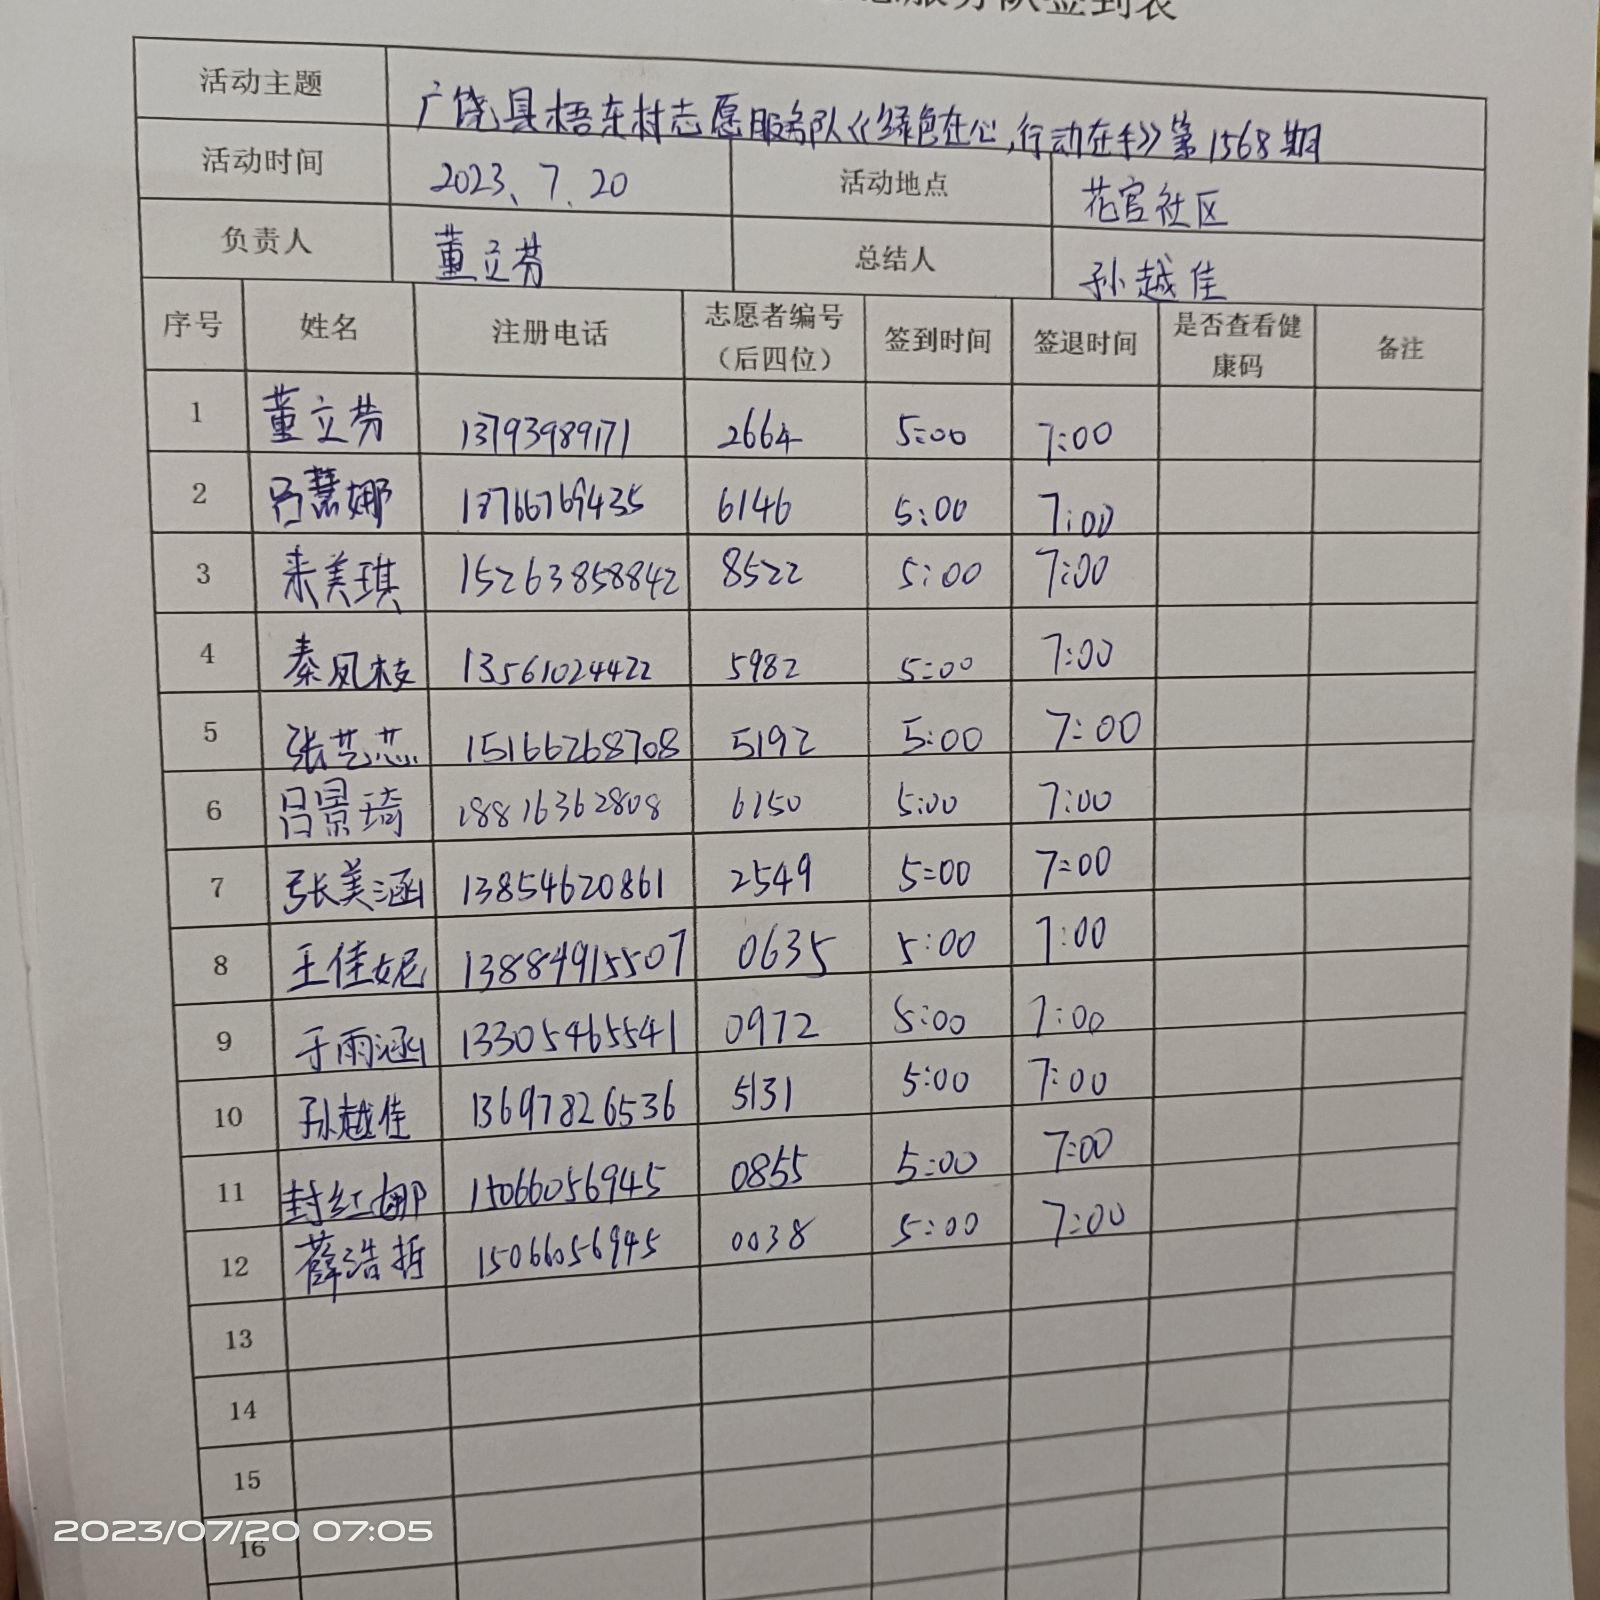 服务队签到表
活动主题 广饶县梧东村志愿服务队《绿色在心,行动在手》第1568期
活动时间 2023、7、20 活动地点 花官社区
负责人 董立芬 总结人 孙越佳
序号 姓名 注册电话 志愿者编号（后四位） 签到时间 签退时间 是否查看健康码 备注
1 董立芬 13793989171 2664 5:00 7:00
2 吕慧娜 13766769435 6146 5:00 7:00
3 来美琪 15263858842 8522 5:00 7:00
4 秦凤枝 13561024422 5982 5:00 7:00
5 张艺芯 15166268708 5192 5:00 7:00
6 吕景琦 18816362808 6150 5:00 7:00
7 张美涵 13854620861 2549 5:00 7:00
8 王佳妮 13884915507 0635 5:00 7:00
9 于雨涵 13305465541 0972 5:00 7:00
10 孙越佳 13697826536 5131 5:00 7:00
11 封红娜 15066056945 0855 5:00 7:00
12 薛浩哲 15066056945 0038 5:00 7:00
13
14
15
16
2023/07/20 07:05